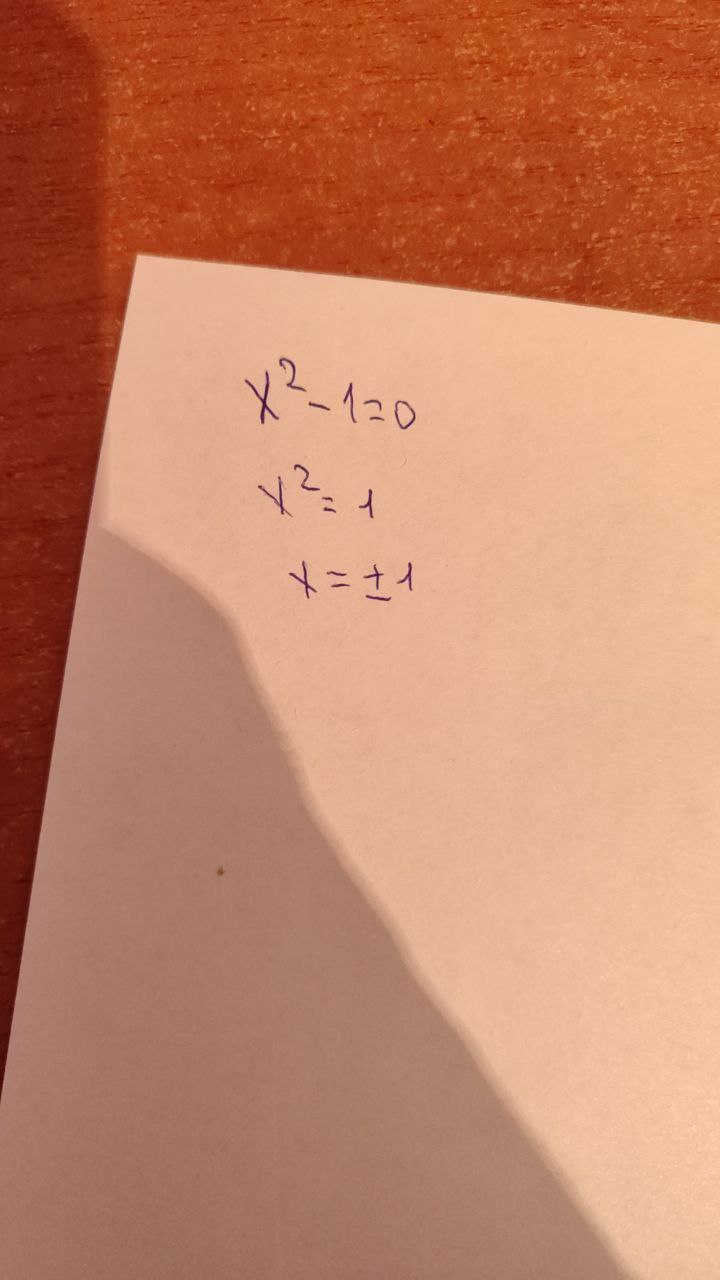 x² - 1 = 0
x² = 1
x = ± 1